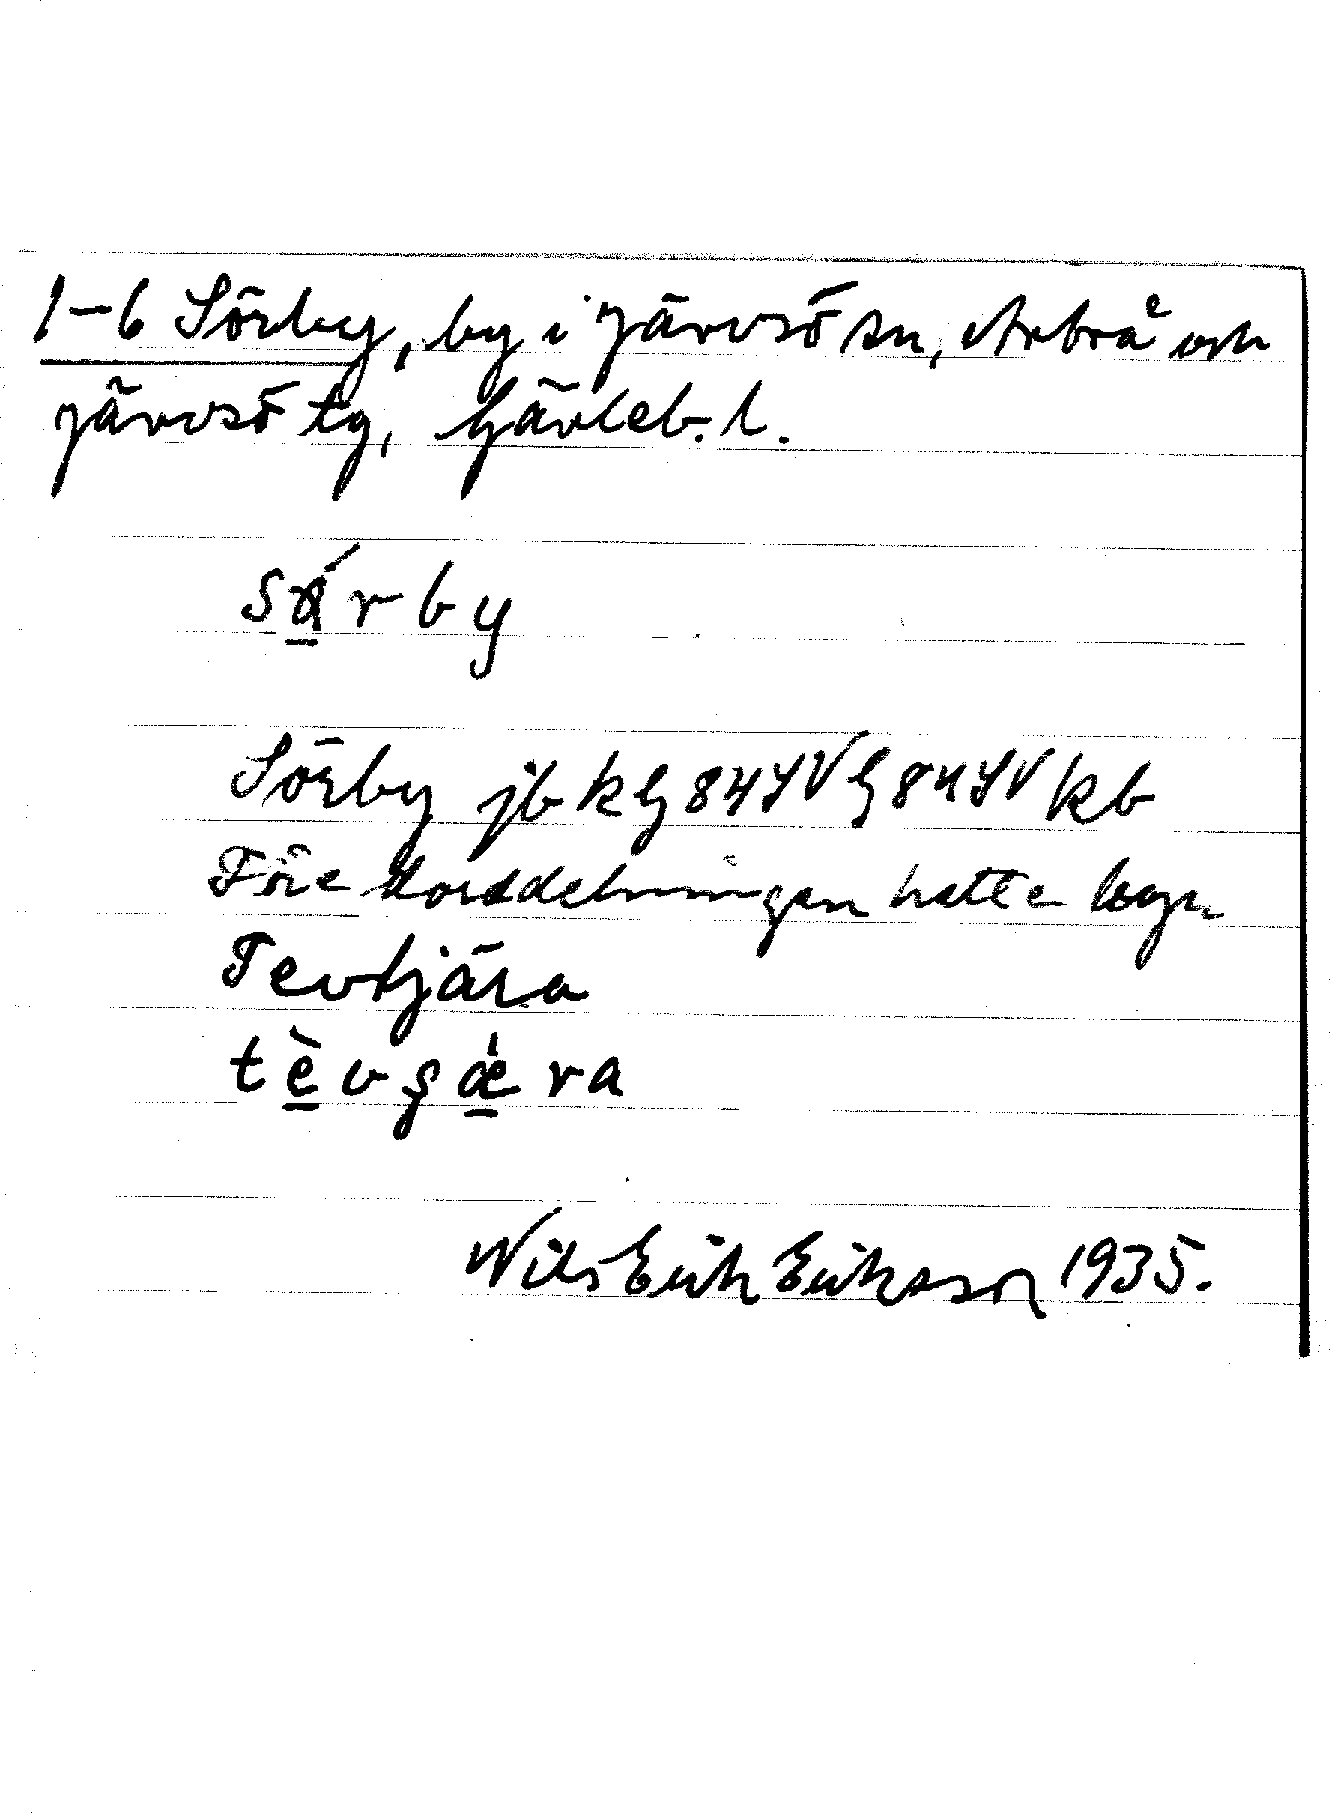 1-6 Sörby, by i Järvsö sn, Arbrå och
Järvsö tg, Gävleb. l.
sǽrby
Sörby jb k G 84 SV G 84 SV kb
Före storskelningen hette byn
Tevtjära
tèvçǽra
Nils Erik Eriksson 1935.